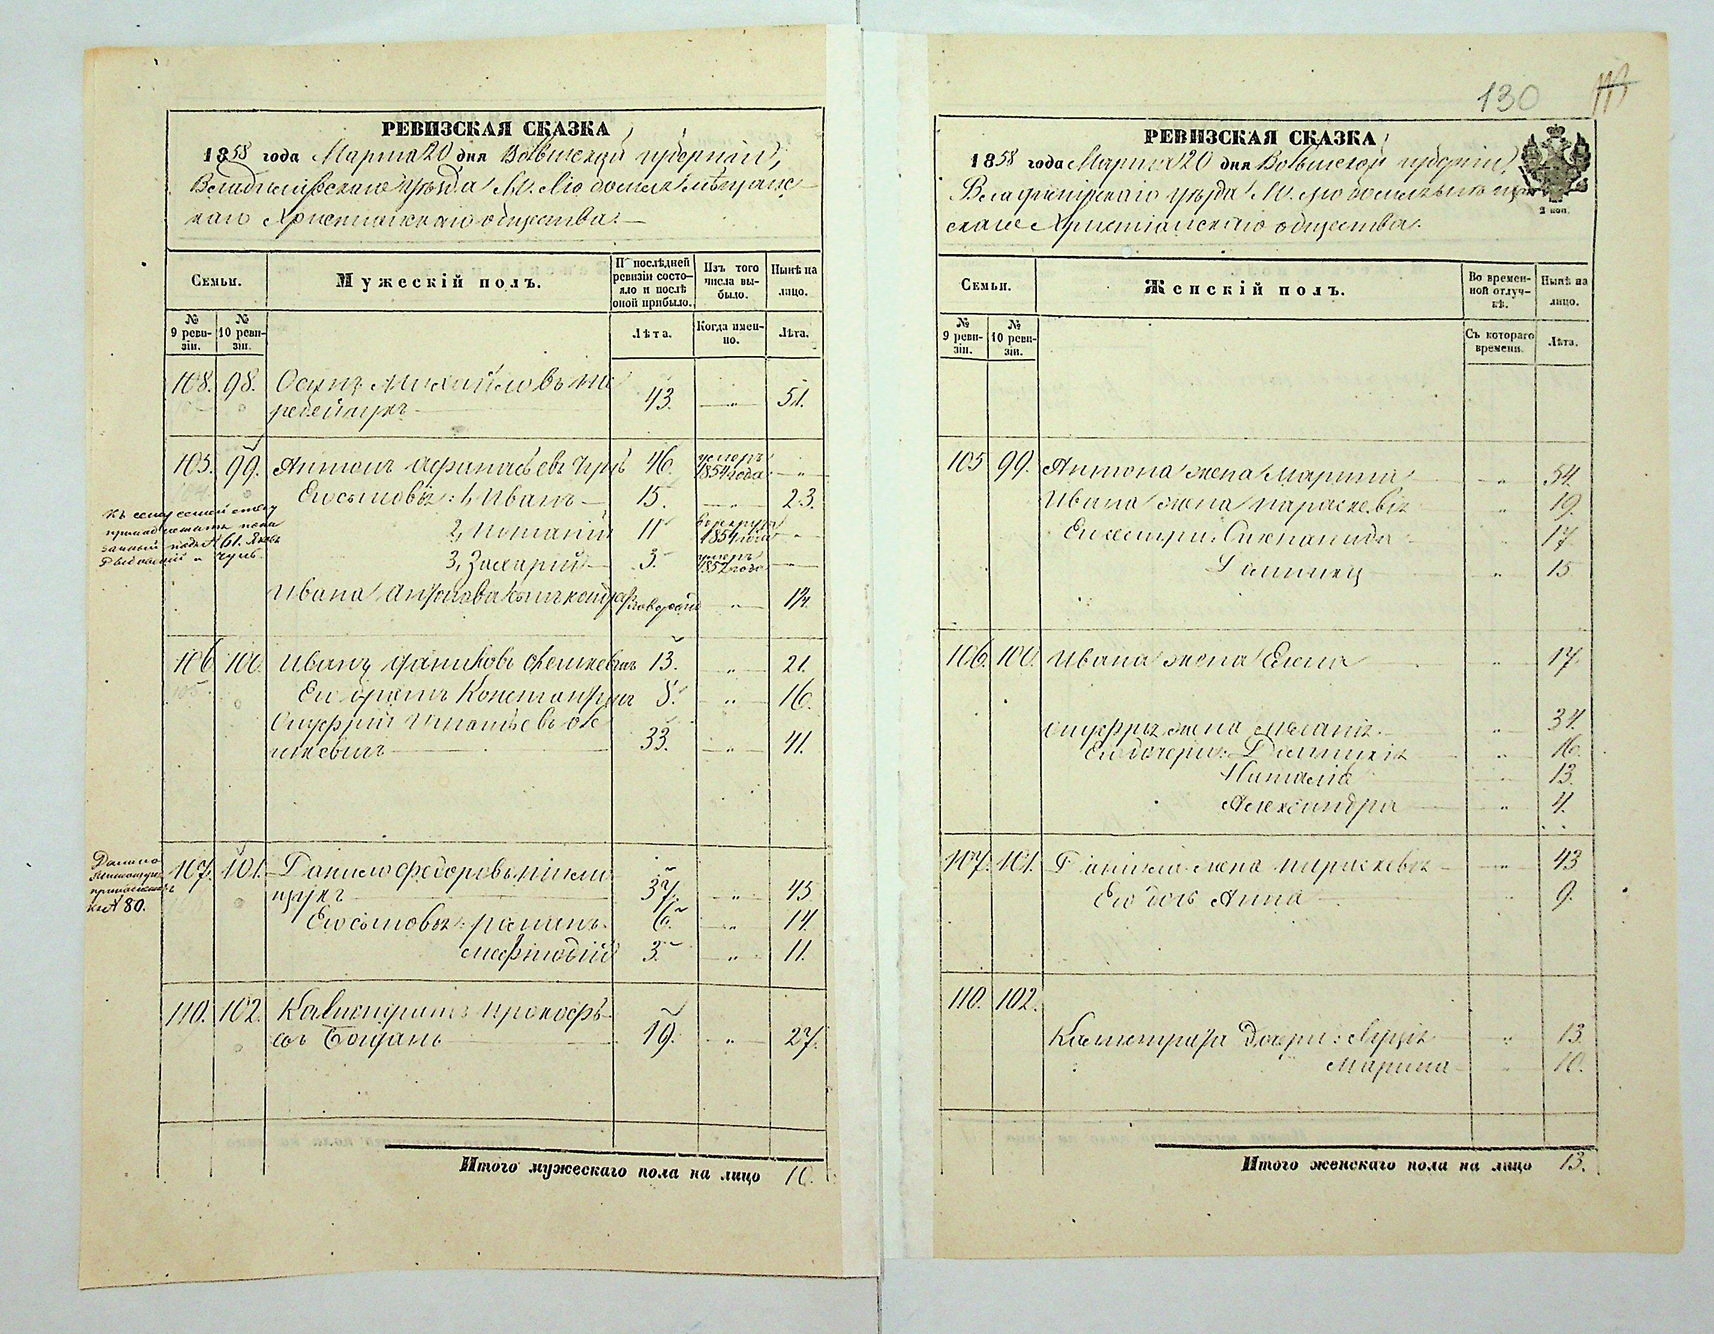 РЕВИЗСКАЯ СКАЗКА
1858 года Марта 20 дня Волынской губернии,
Владимірскаго уѣзда М. Любомля мѣщанс-
каго Христианскаго общества.
Семьи.
Мужескій полъ.
По послѣдней ревизіи состояло и послѣ оной прибыло.
Изъ того числа выбыло.
Нынѣ на лицо.
№ 9 ревизіи.
№ 10 ревизіи.
Лѣта.
Когда именно.
Лѣта.
108. 98. Осипъ Михайловъ
43. — „ — 51.
105. 99. Антонъ Афанасьевъ 46. умеръ 1854 года —
Его сыновья: 1, Иванъ — 15. — 23.
2, 11 1854 года —
3, Захарій — 3. умеръ 1852 года —
Ивана Антонова сынъ „
Къ сему семейству
№ 61.
106. 100. Иванъ 13. „ 21.
Его братъ Константинъ 8. „ 16.
Онуфрій Игнатьевъ
33. „ 41.
107. 101. Данило Федоровъ
37. „ 45
Его сыновья: Романъ. 6. „ 14.
Мефтодій 3. „ 11.
Данило
къ № 80.
110. 102. Калистратъ Прокофь-
евъ 19. „ 27.
Итого мужескаго пола на лицо 10.
130
РЕВИЗСКАЯ СКАЗКА
1858 года Марта 20 дня Волынской губерніи,
Владимірскаго уѣзда М. Любомля мѣщан-
скаго Христіанскаго общества.
2 коп.
Семьи.
Женскій полъ.
Во временной отлучкѣ.
Нынѣ на лицо.
№ 9 ревизіи.
№ 10 ревизіи.
Съ котораго времени.
Лѣта.
105 99. Антона жена Марина „ 54.
Ивана жена Параскевія „ 19.
Его сестры: „ 17.
„ 15
106. 100. Ивана жена Елена „ 17.
Онуфрія жена Меланія „ 34.
Его дочери: „ 16.
Наталія „ 13.
Александра „ 4.
107. 101. Данила жена Параскевія „ 43
Его дочь Анна „ 9.
110. 102.
Калистрата дочери: Луція „ 13.
Марина „ 10.
Итого женскаго пола на лицо 13.